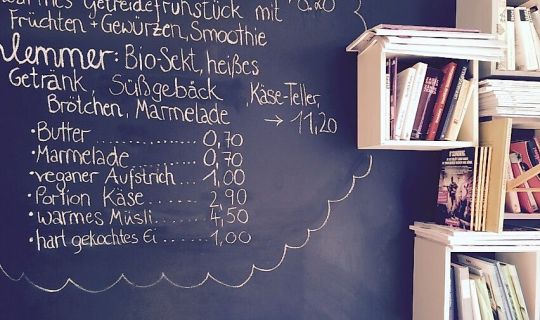 warmes Getreidefrühstück mit 8.20
Früchten + Gewürzen, Smoothie
lemmer: Bio-Sekt, heißes
Getränk, Süßgebäck, Käse-Teller,
Brötchen, Marmelade → 11,20
• Butter .............. 0,70
• Marmelade .......... 0,70
• veganer Aufstrich .... 1,00
• Portion Käse ........ 2,90
• warmes Müsli ....... 4,50
• hart gekochtes Ei ..... 1,00